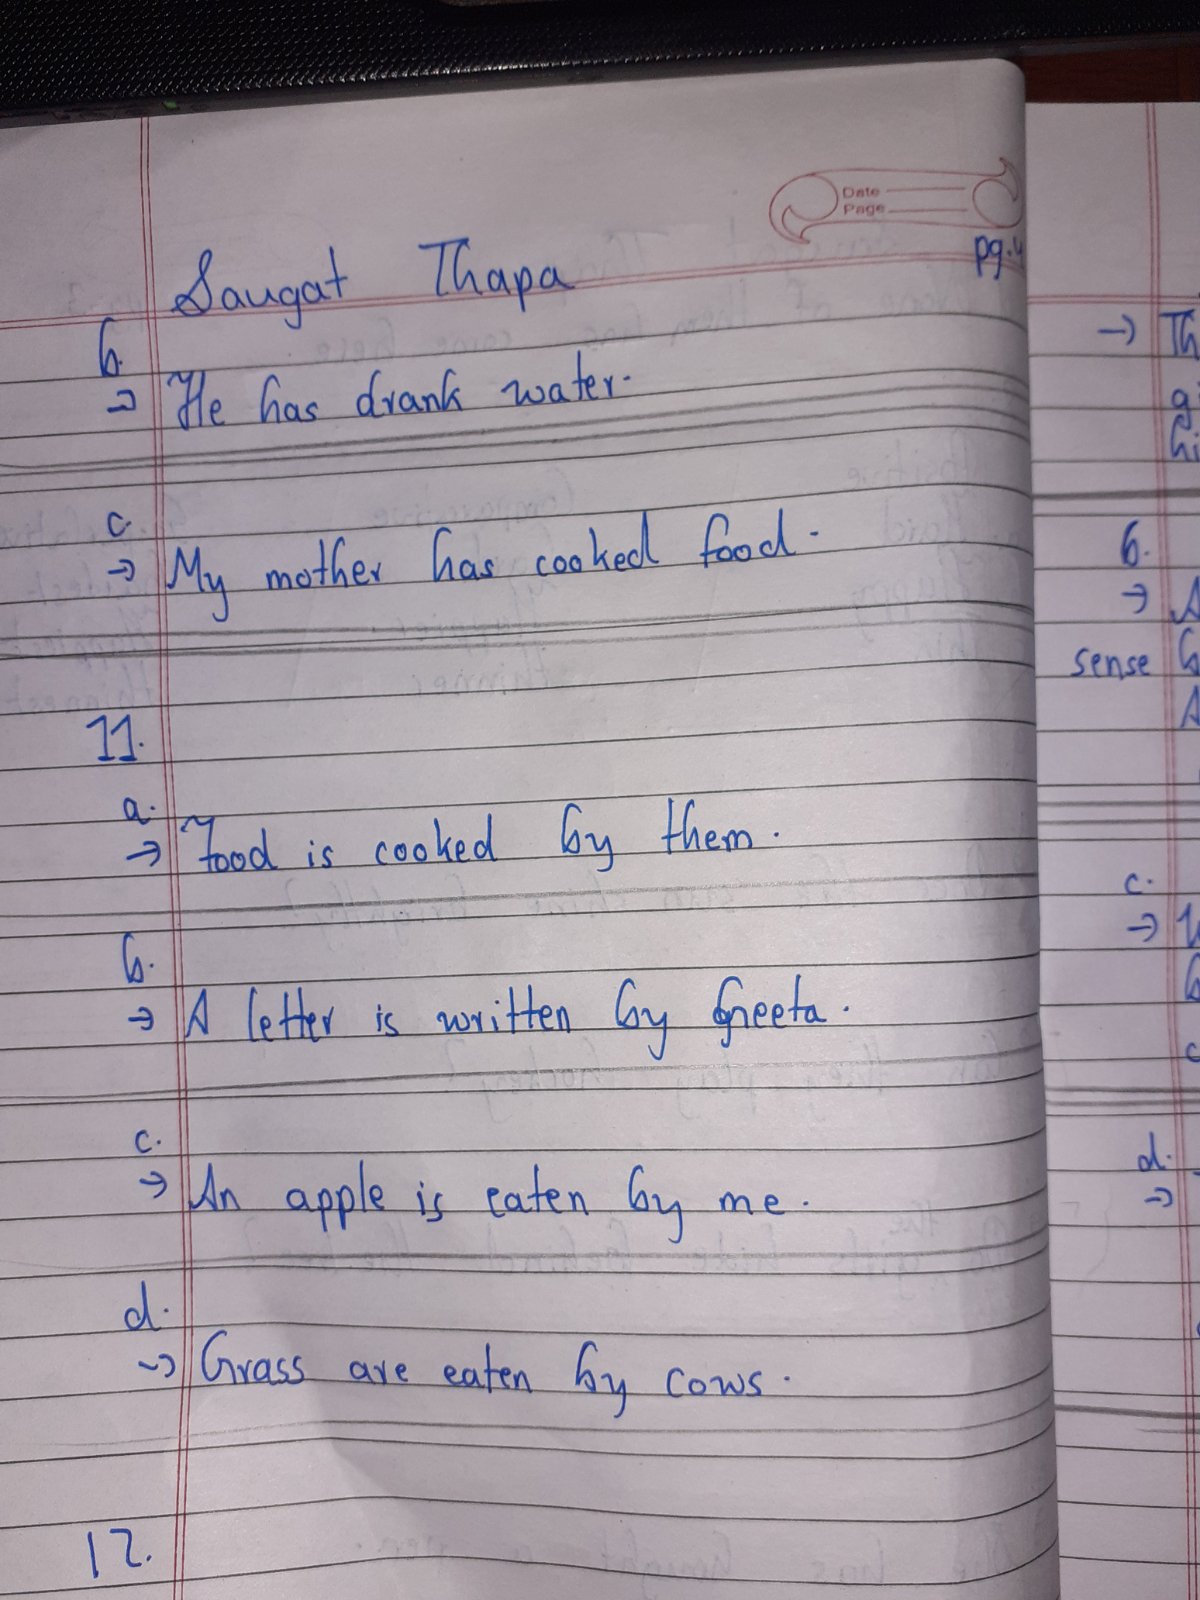 Date
Page
pg.4
Saugat Thapa
b.
→ He has drank water.
c.
→ My mother has cooked food.
11.
a.
→ Food is cooked by them.
b.
→ A letter is written by Greeta.
c.
→ An apple is eaten by me.
d.
→ Grass are eaten by cows.
12.
→
b.
→ A
sense
A
c.
→
d.
→